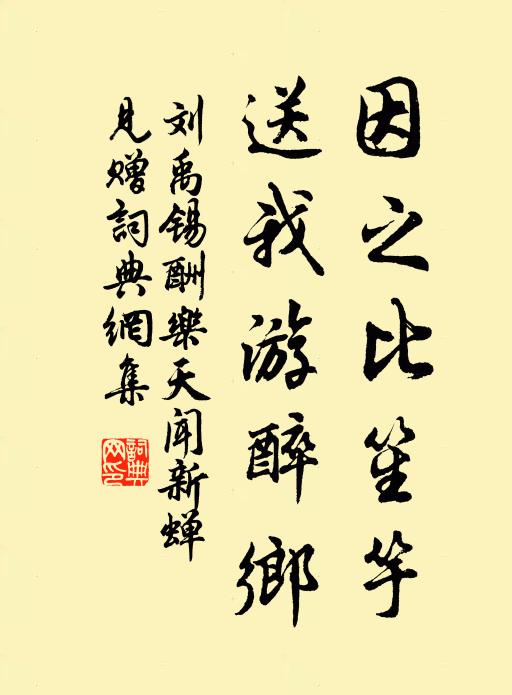 因之比笙竽
送我游醉鄉
刘禹锡酬樂天闻新蝉
见赠詞典網集
詞典网印